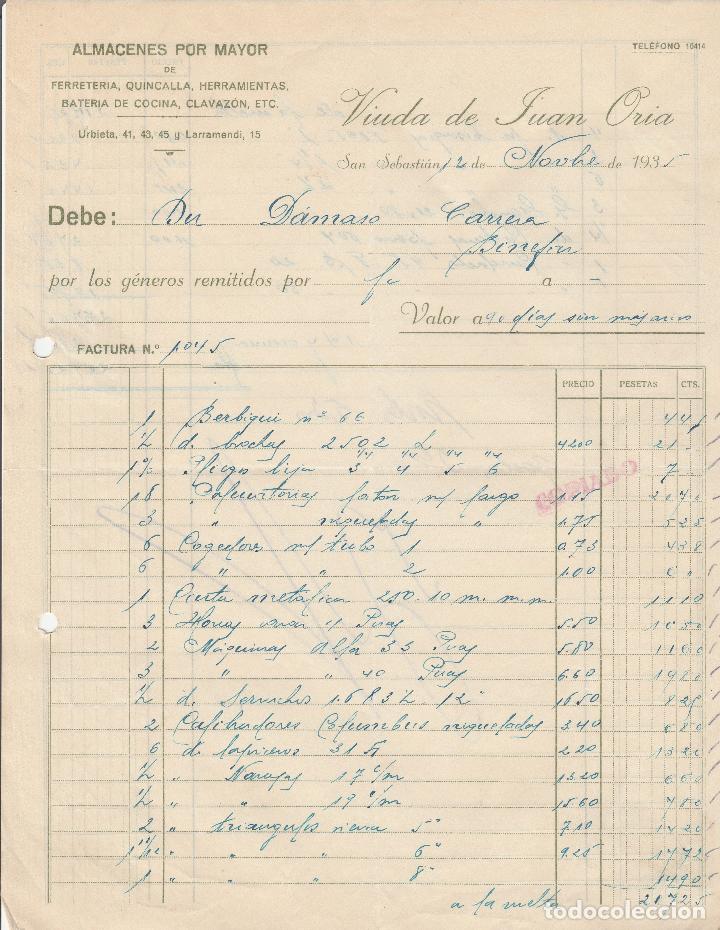 ALMACENES POR MAYOR
DE
FERRETERIA, QUINCALLA, HERRAMIENTAS,
BATERIA DE COCINA, CLAVAZÓN, ETC.
Urbieta, 41, 43, 45 y Larramendi, 15
TELÉFONO 10414
Viuda de Juan Oria
San Sebastián 12 de Novbe de 1935
Debe: Dámaso Carrera
Binefar
por los géneros remitidos por f/c a -
Valor a 90 días sin más aviso
FACTURA N.º 1045
PRECIO PESETAS CTS.
1 Berbiqui nº 66
1/2 d. brochas 2502 42.00 21
Pliego lija 3 4 5 6 7
18 1.15 20 70
3 " niqueladas " 1.75 5 25
6 Cogedores m/ tubo 1 0.73 4 38
6 " " 2 1.00 6 "
1 Cinta metalica 250.10 m.m.m. 11 10
3 4 Puas 5.50 16 50
2 Máquinas Alfa 33 Puas 5.80 11 60
3 " " 40 Puas 6.60 19 80
1/2 d. Serruchos 1.683 1/2 12" 16.50 8 25
2 Calibradores Columbus niquelados 3.40 6 80
6 d. lapiceros 31 2.20 13 20
1/2 " Navajas 17 c/m 13.20 6 60
1/2 " " 19 c/m 15.60 7 80
2 " triangulos 5" 7.10 14 20
1 11/12 " " " 6" 9.25 17 72
1 " " " 8" 14 90
a la vuelta 217 25
COPIADO
todocoleccion